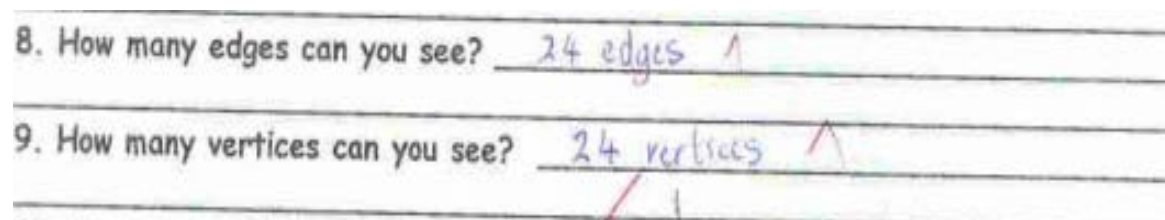 8. How many edges can you see? 24 edges
9. How many vertices can you see? 24 vertices